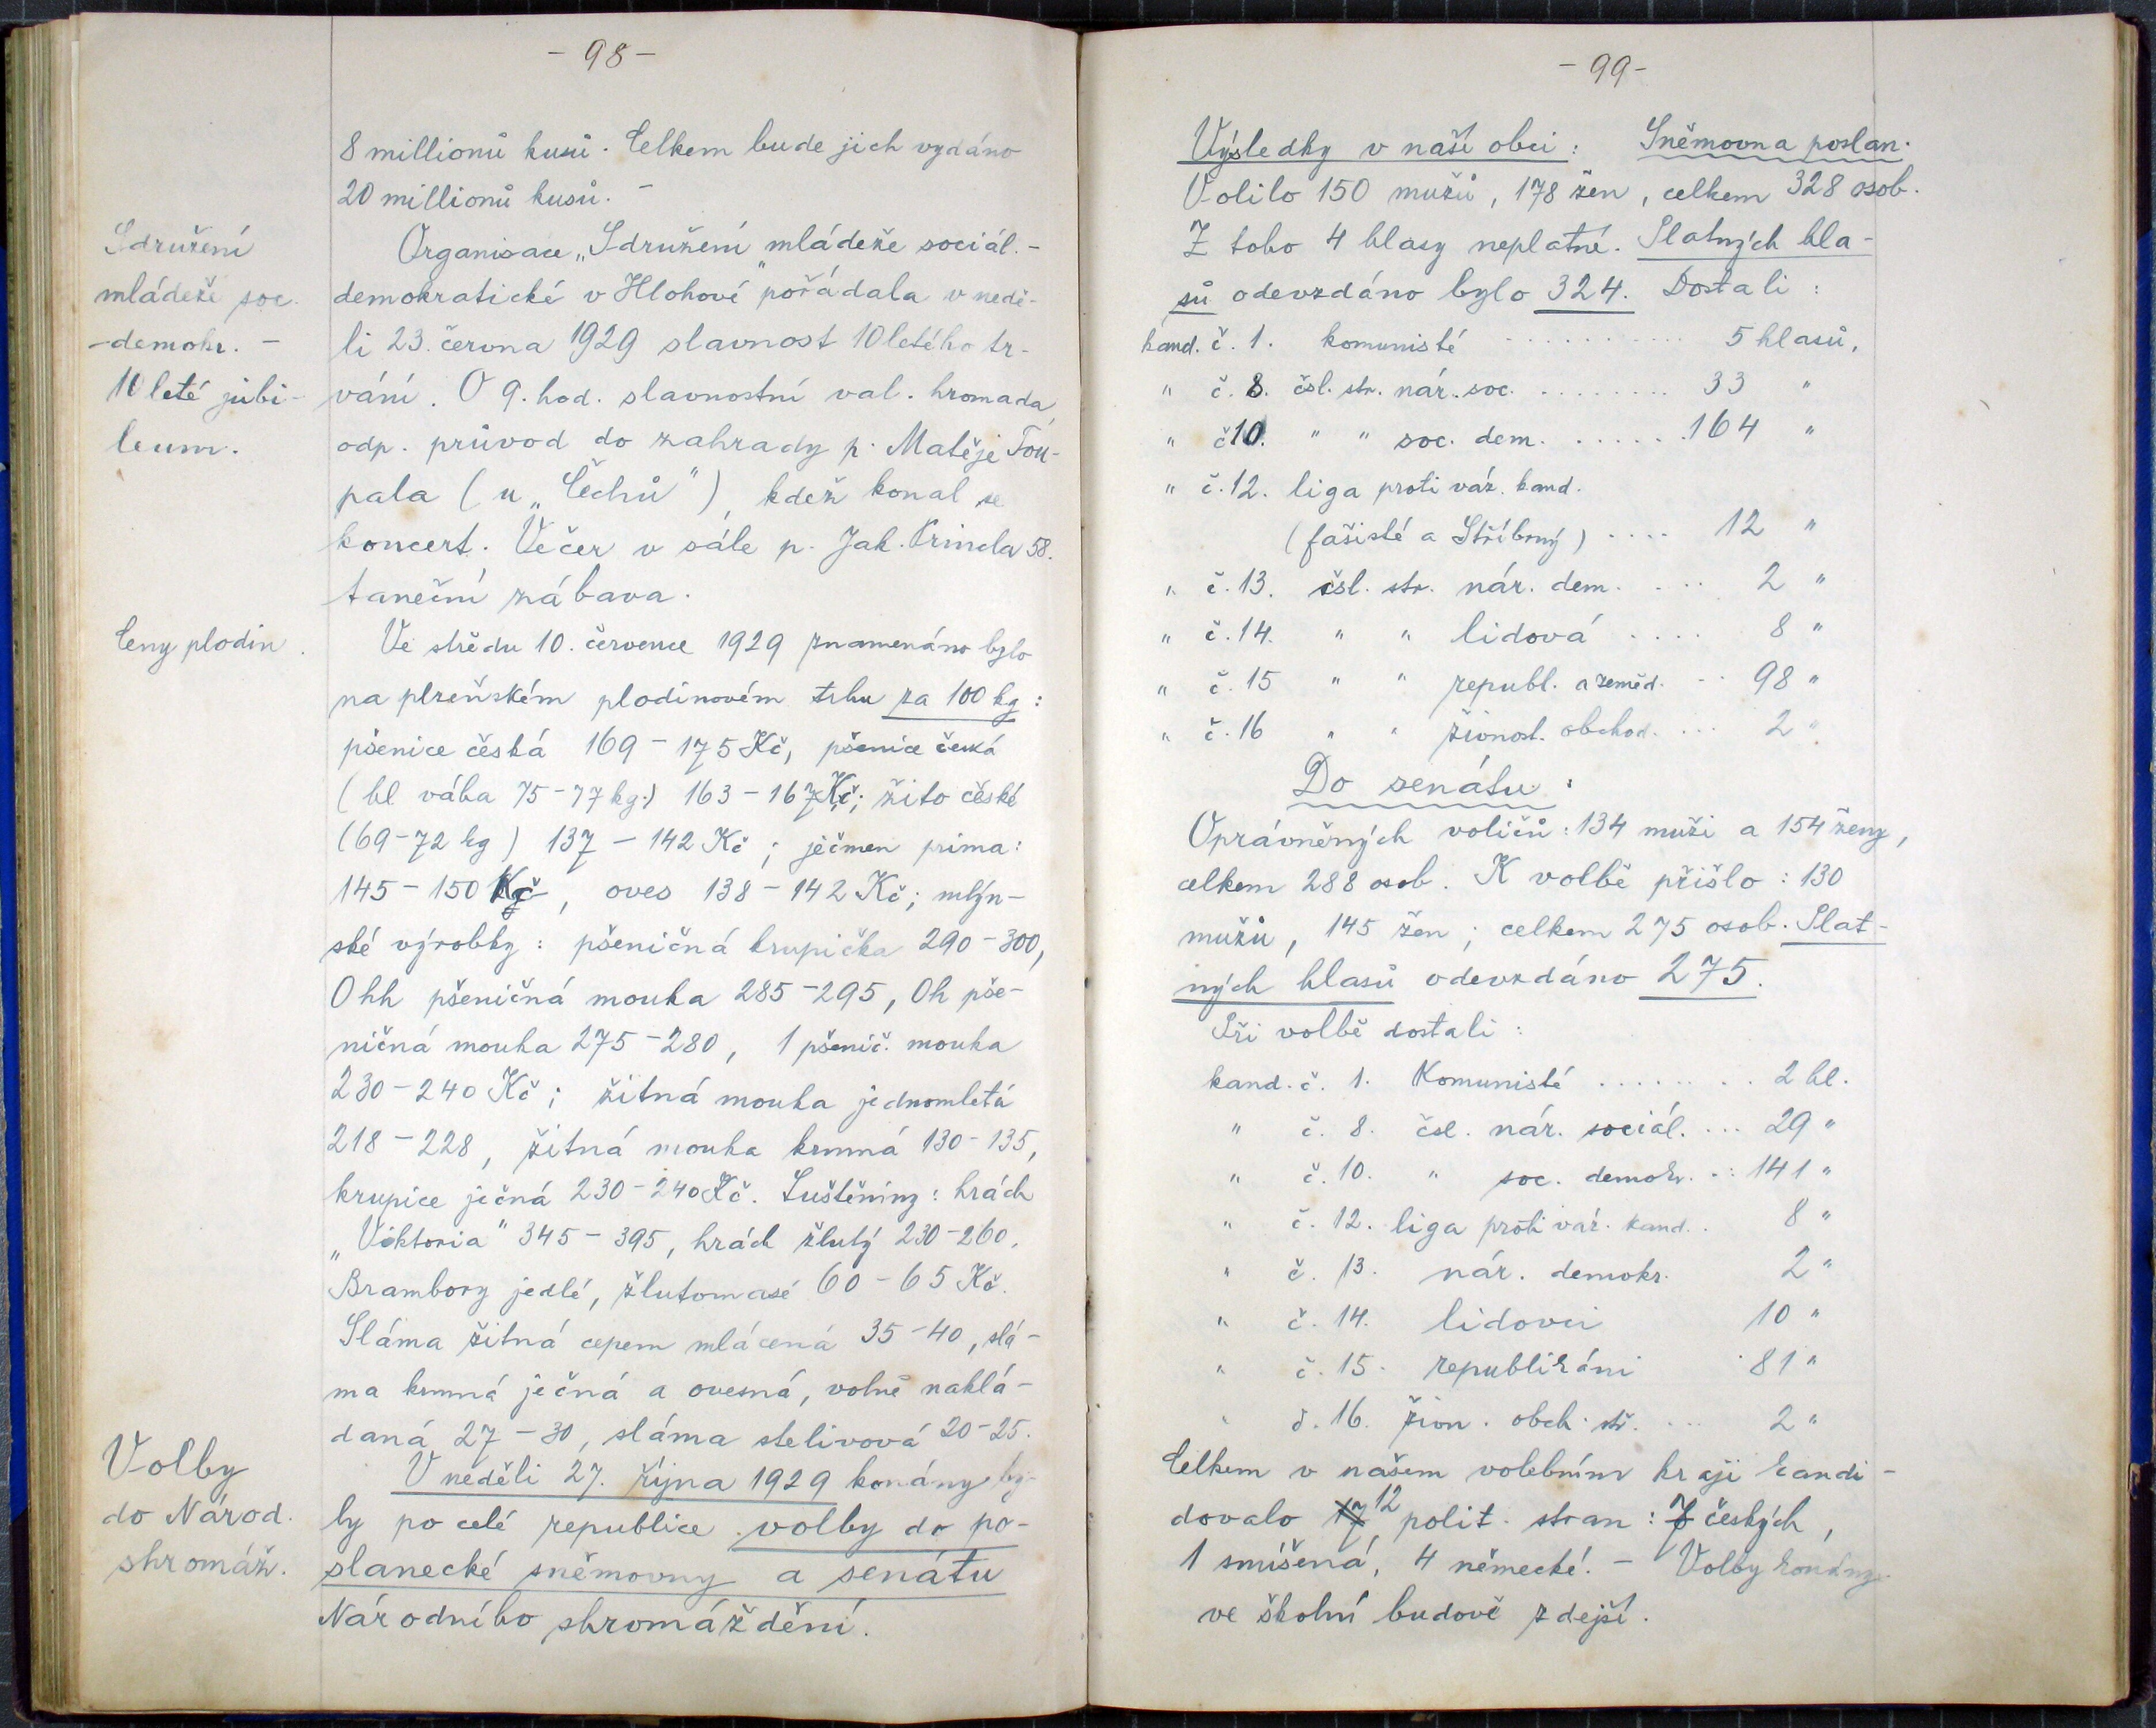 - 98 -
8 millionů kusů. Celkem bude jich vydáno
20 millionů kusů. -
Sdružení
mládeže soc.
-demokr. -
10leté jubi-
leum.
Organisace „Sdružení mládeže sociál.-
demokratické v Hlohové" pořádala v nedě-
li 23. června 1929 slavnost 10letého tr-
vání. O 9. hod. slavnostní val. hromada,
odp. průvod do zahrady p. Matěje Tou-
pala (u „Čechů"), kdež konal se
koncert. Večer v sále p. Jak. Princla 58.
taneční zábava.
Ceny plodin.
Ve středu 10. července 1929 znamenáno bylo
na plzeňském plodinovém trhu za 100 kg:
pšenice česká 169-175 Kč, pšenice česká
(hl váha 75-77 kg.) 163-167 Kč; žito české
(69-72 kg) 137-142 Kč; ječmen prima:
145-150 Kč, oves 138-142 Kč; mlýn-
ské výrobky: pšeničná krupička 290-300,
0hh pšeničná mouka 285-295, 0h pše-
ničná mouka 275-280, 1 pšenič. mouka
230-240 Kč; žitná mouka jednomletá
218-228, žitná mouka krmná 130-135,
krupice ječná 230-240 Kč. Luštěniny: hrách
„Viktoria" 345-395, hrách žlutý 230-260.
Brambory jedlé, žlutomasé 60-65 Kč.
Sláma žitná cepem mlácená 35-40, slá-
ma krmná ječná a ovesná, volně naklá-
daná 27-30, sláma stelivová 20-25.
Volby
do Národ.
shromáž.
V neděli 27. října 1929 konány by-
ly po celé republice volby do po-
slanecké sněmovny a senátu
Národního shromáždění.
- 99 -
Výsledky v naší obci: Sněmovna poslan.
Volilo 150 mužů, 178 žen, celkem 328 osob.
Z toho 4 hlasy neplatné. Platných hla-
sů odevzdáno bylo 324. Dostali:
kand. č. 1. komunisté .......... 5 hlasů,
" č. 8. čsl. str. nár. soc. ........ 33 "
" č. 10. " " soc. dem. ...... 164 "
" č. 12. liga proti váz. kand.
(fašisté a Stříbrný) .... 12 "
" č. 13. čsl. str. nár. dem. .... 2 "
" č. 14. " " lidová .... 8 "
" č. 15 " " republ. a zeměd. .. 98 "
" č. 16 " " živnost. obchod. ... 2 "
Do senátu:
Oprávněných voličů: 134 muži a 154 ženy,
celkem 288 osob. K volbě přišlo: 130
mužů, 145 žen; celkem 275 osob. Plat-
ných hlasů odevzdáno 275.
Při volbě dostali:
kand. č. 1. Komunisté ........ 2 hl.
" č. 8. čsl. nár. sociál. ... 29 "
" č. 10. " soc. demokr. ... 141 "
" č. 12. liga proti váz. kand. . 8 "
" č. 13. nár. demokr. 2 "
" č. 14. lidovci 10 "
" č. 15. republikáni 81 "
" č. 16. živn. obch. str. ... 2 "
Celkem v našem volebním kraji kandi-
dovalo 17 12 polit. stran: 7 českých,
1 smíšená, 4 německé. - Volby konány
ve školní budově zdejší.